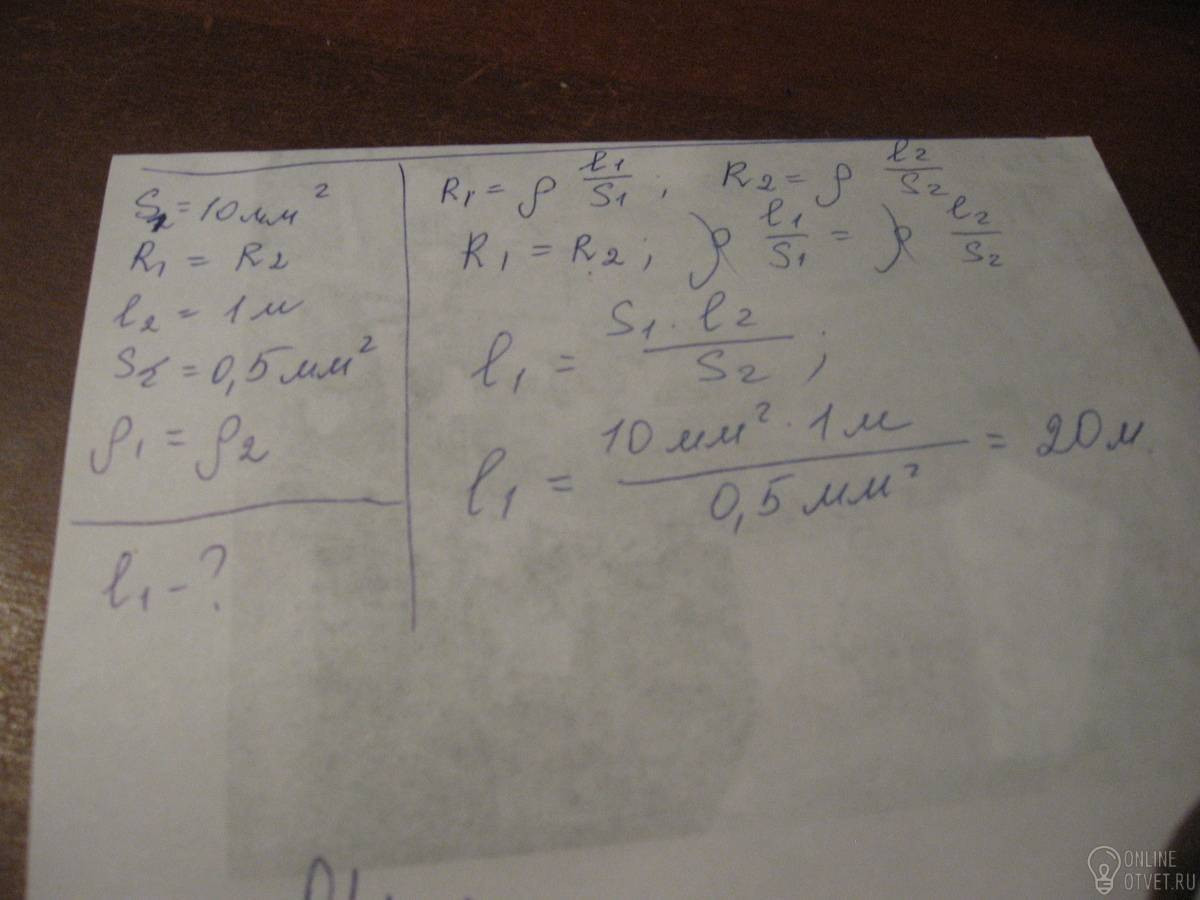 S₂ = 10 мм²
R₁ = R₂
l₂ = 1 м
S₂ = 0,5 мм²
ρ₁ = ρ₂
l₁ - ?
R₁ = ρ l₁/S₁ ; R₂ = ρ l₂/S₂
R₁ = R₂ ; ρ l₁/S₁ = ρ l₂/S₂
l₁ = S₁ · l₂/S₂ ;
l₁ = 10 мм² · 1 м/0,5 мм² = 20 м.
ONLINE
OTVET.RU